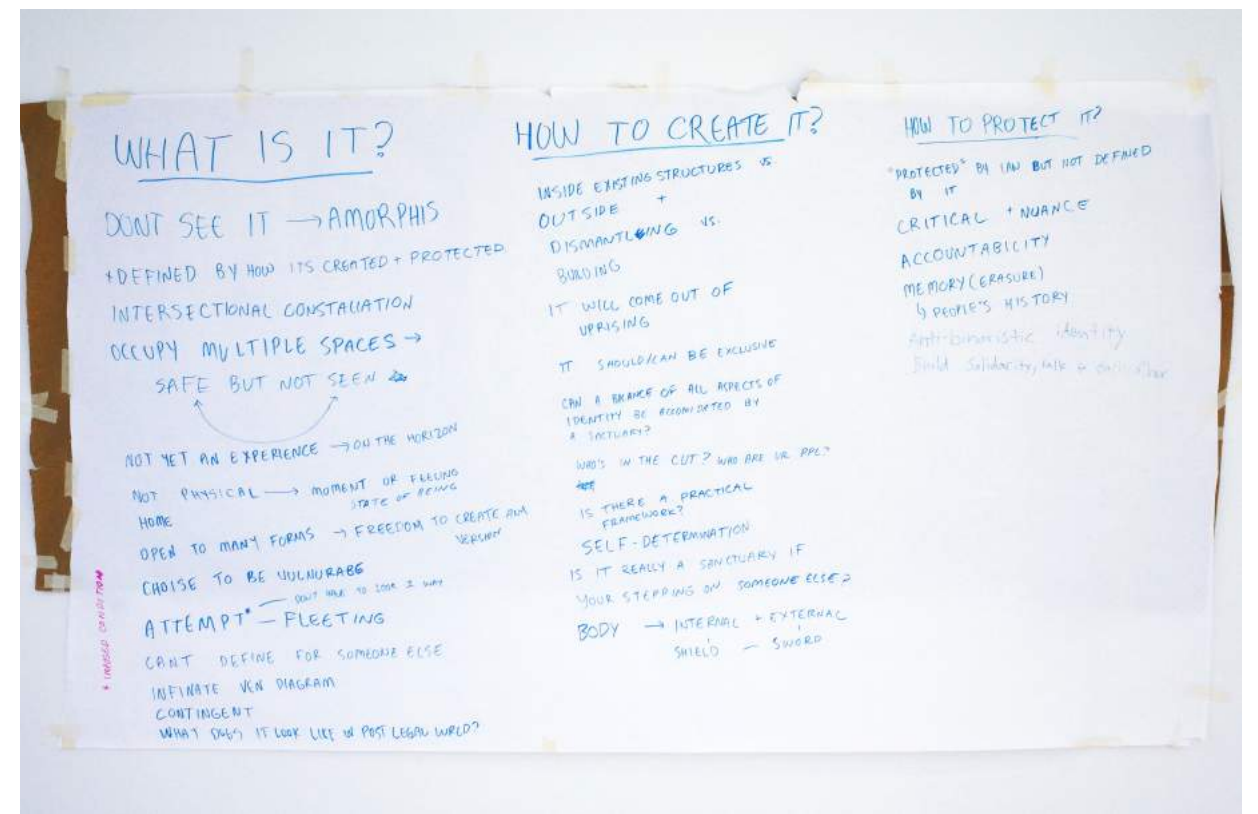 WHAT IS IT?
DONT SEE IT → AMORPHIS
+DEFINED BY HOW ITS CREATED + PROTECTED
INTERSECTIONAL CONSTALIATION
OCCUPY MULTIPLE SPACES →
SAFE BUT NOT SEEN
NOT YET AN EXPERIENCE → ON THE HORIZON
NOT PHYSICAL → MOMENT OR FEELING
STATE OF BEING
HOME
OPEN TO MANY FORMS → FREEDOM TO CREATE
VERSION
CHOISE TO BE VULNURABE
DON'T HAVE TO LOOK 1 WAY
ATTEMPT* — FLEETING
CANT DEFINE FOR SOMEONE ELSE
INFINATE VEN DIAGRAM
CONTINGENT
WHAT DOES IT LOOK LIKE IN POST LEGAL WRLD?
CONDITION
HOW TO CREATE IT?
INSIDE EXISTING STRUCTURES VS.
OUTSIDE +
DISMANTLING VS.
BUILDING
IT WILL COME OUT OF
UPRISING
IT SHOULD/CAN BE EXCLUSIVE
CAN A BALANCE OF ALL ASPECTS OF
IDENTITY BE ACCOMIDATED BY
A SACTUARY?
WHO'S IN THE CUT? WHO ARE UR PPL?
IS THERE A PRACTICAL
FRAMEWORK?
SELF-DETERMINATION
IS IT REALLY A SANCTUARY IF
YOUR STEPPING ON SOMEONE ELSE?
BODY → INTERNAL + EXTERNAL
SHIELD — SWORD
HOW TO PROTECT IT?
"PROTECTED" BY LAW BUT NOT DEFINED
BY IT
CRITICAL + NUANCE
ACCOUNTABILITY
MEMORY (ERASURE)
↳ PEOPLE'S HISTORY
Anti-binaristic identity
Build Solidarity, talk to each other